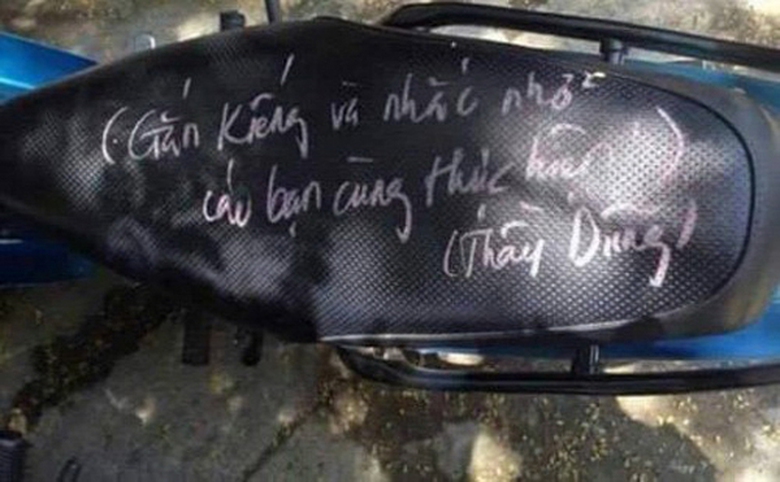 (Gắn Kiếng và nhắc nhở
các bạn cùng thực hiện!)
(Thầy Dũng)